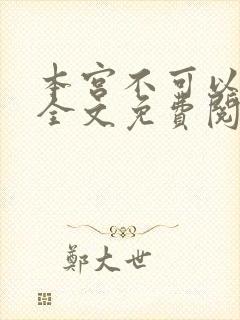 本宫不可以
全文免费阅
鄭大世